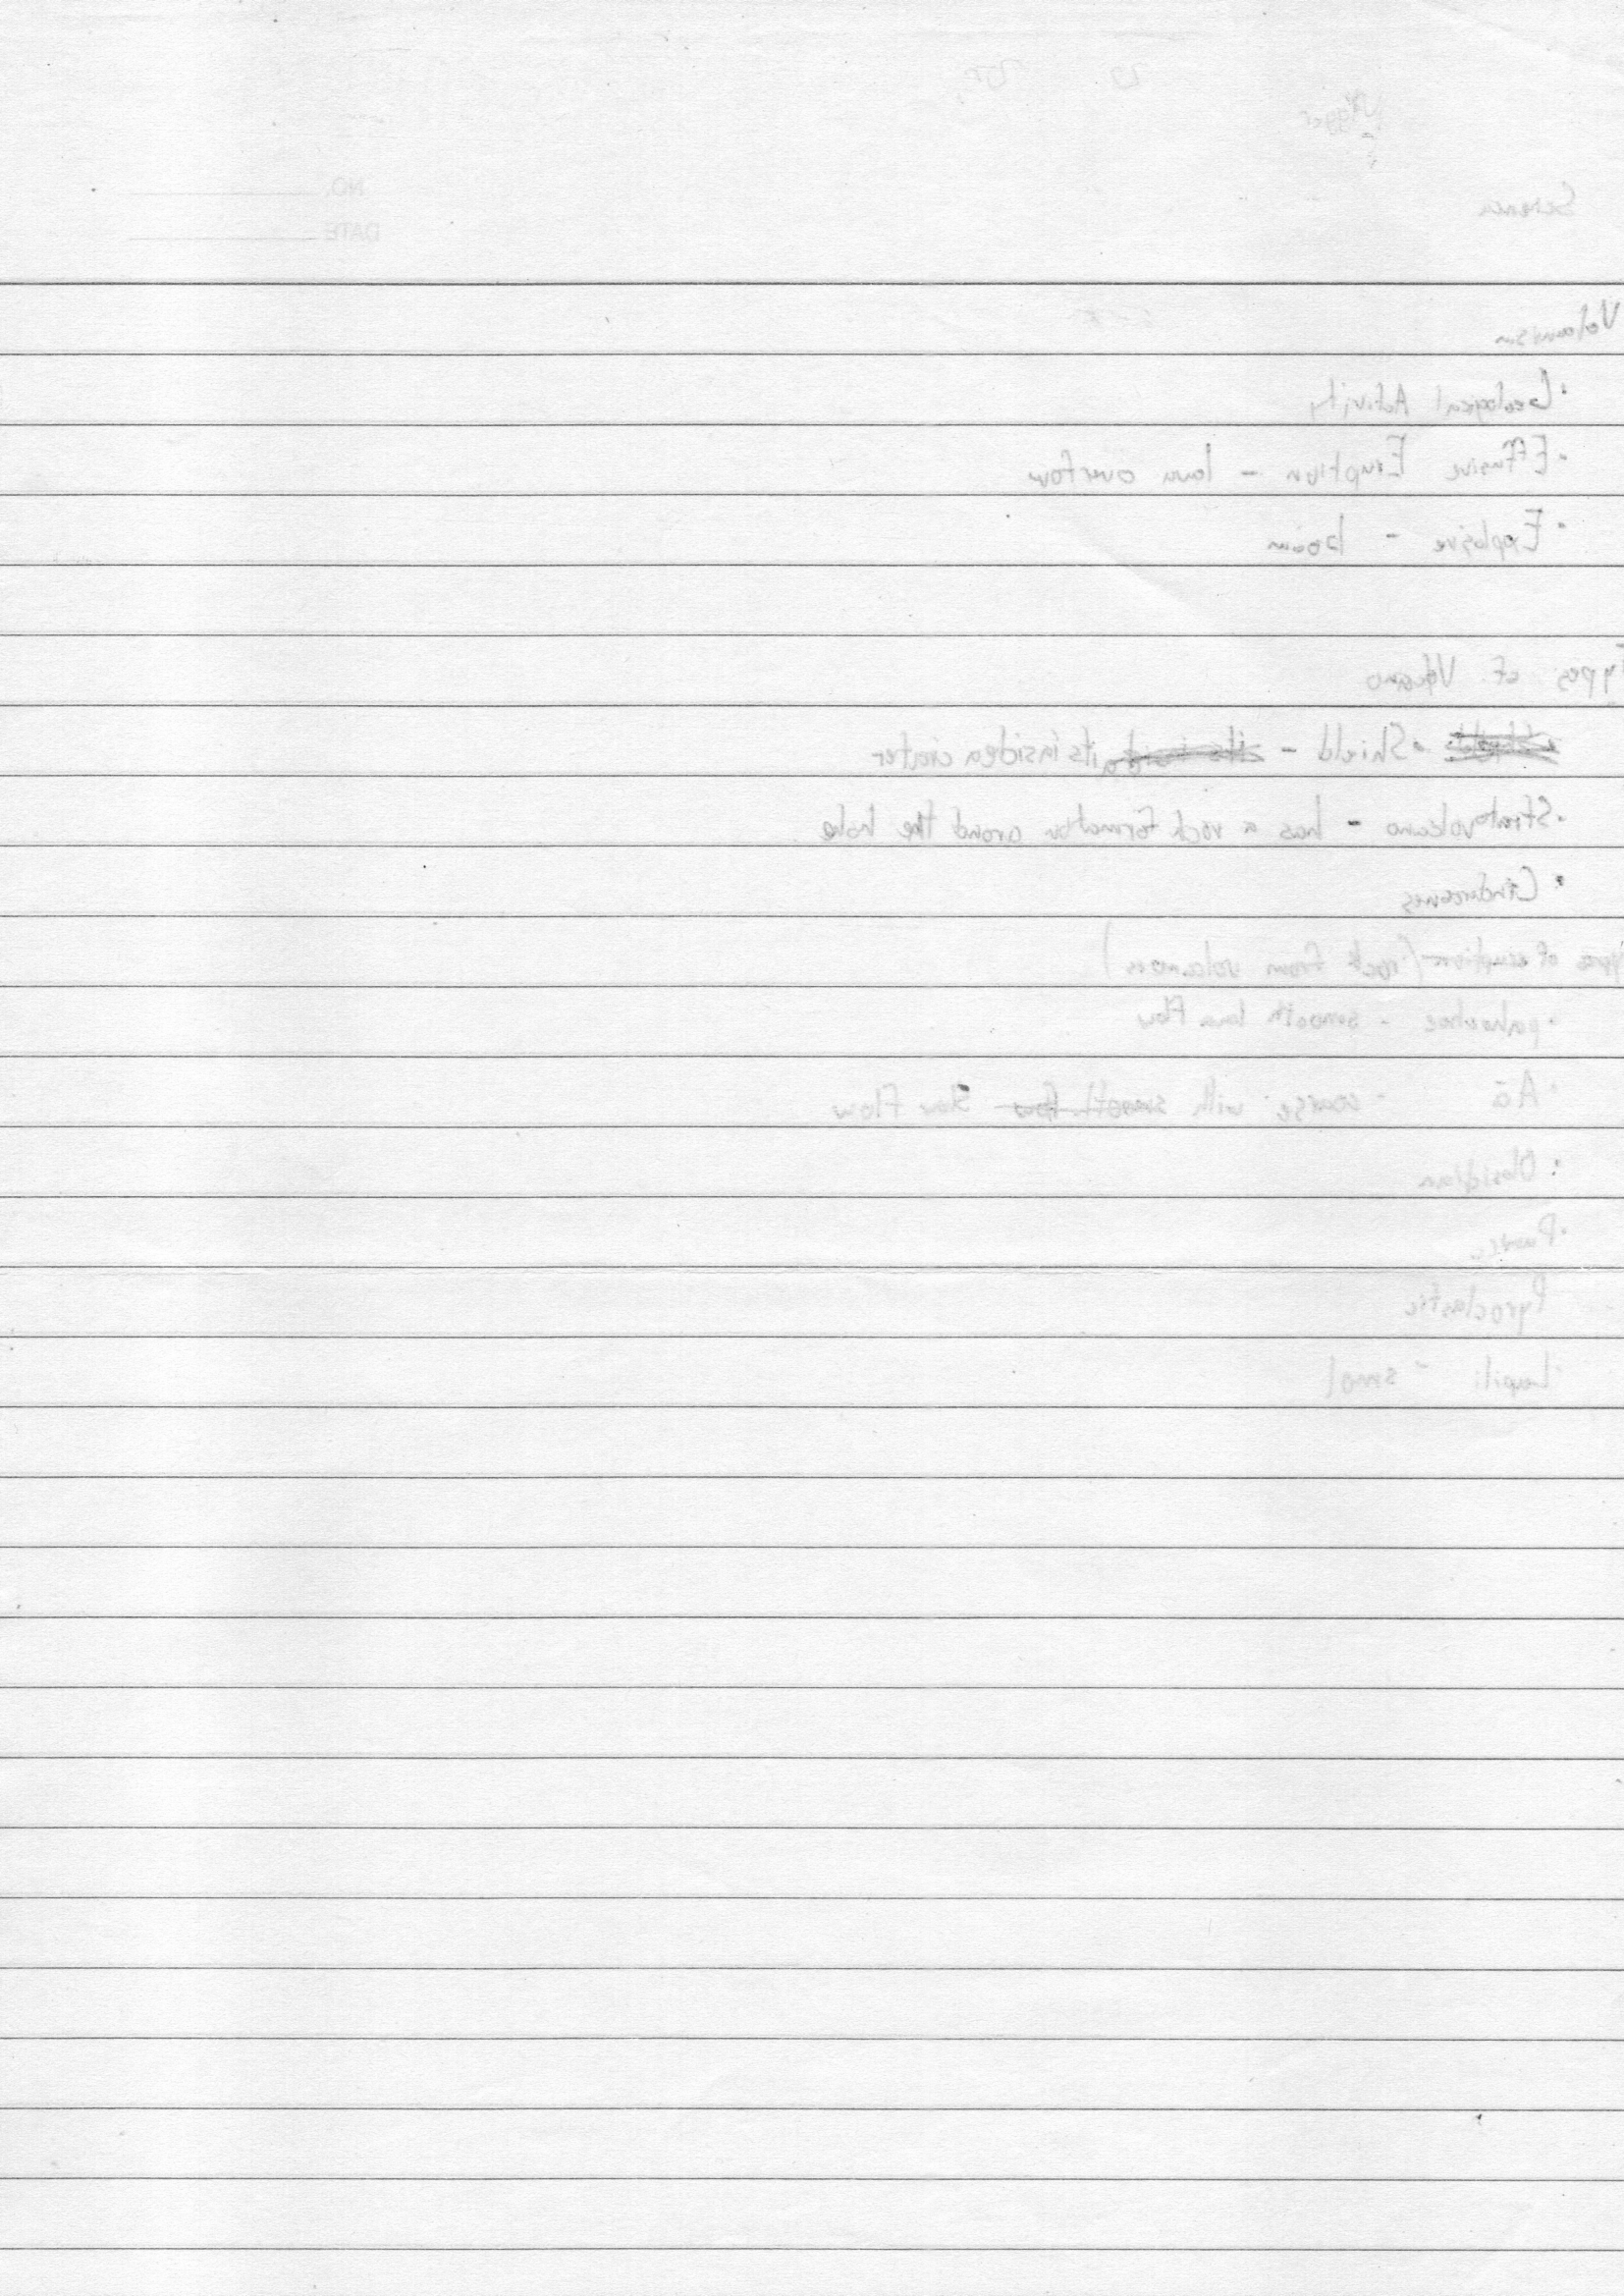 Science
NO.
DATE
Volcanism
• Geological Activity
• Effusive Eruption - lava overflow
• Explosive - boom
Types of Volcano
• Shield - its inside a crater
• Stratovolcano - has a rock formation around the hole
• Cindercones
Types of eruption (rock from volcanoes)
• pahoehoe - smooth lava flow
• Aā - coarse with smooth flow slow flow
• Obsidian
• Pumice
Pyroclastic
Lapili - smol